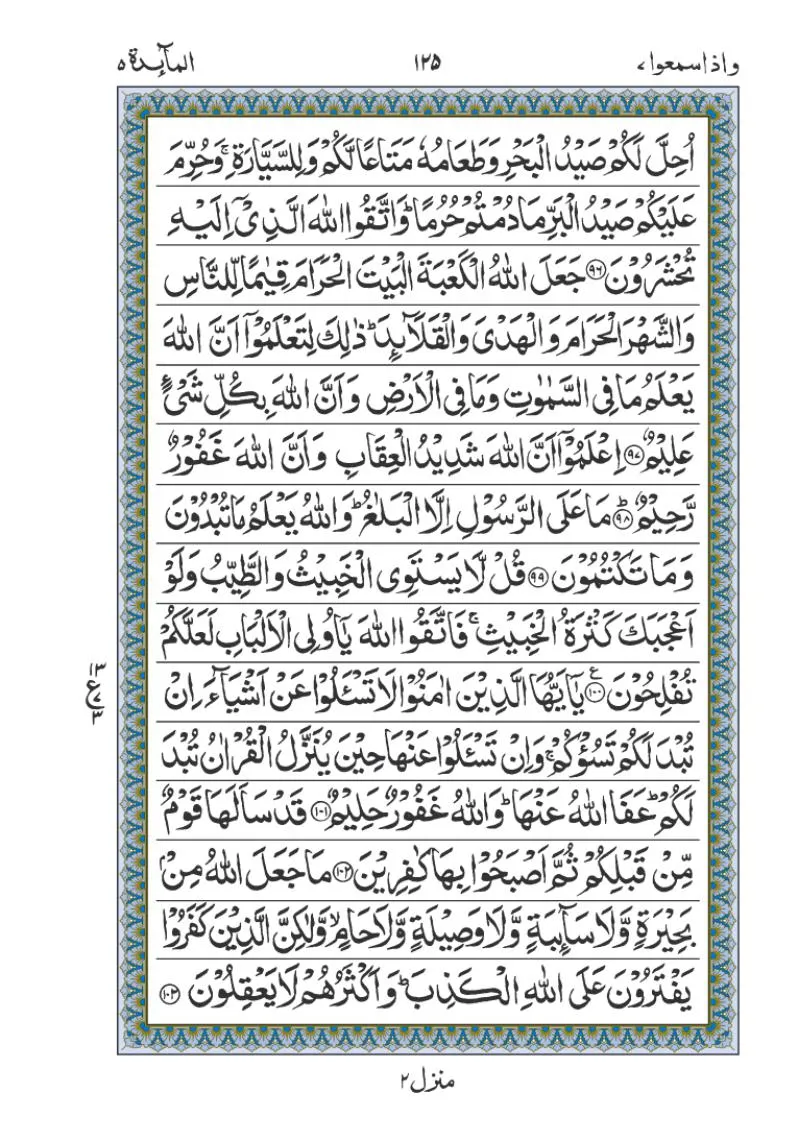 واذاسمعوا ۷ ۱۲۵ المآئدة ۵
اُحِلَّ لَكُمْ صَيْدُ الْبَحْرِ وَطَعَامُهٗ مَتَاعًا لَّكُمْ وَلِلسَّيَّارَةِ ۚ وَحُرِّمَ
عَلَيْكُمْ صَيْدُ الْبَرِّ مَا دُمْتُمْ حُرُمًا ؕ وَاتَّقُوا اللّٰهَ الَّذِیْۤ اِلَيْهِ
تُحْشَرُوْنَ ﴿۹۶﴾ جَعَلَ اللّٰهُ الْكَعْبَةَ الْبَيْتَ الْحَرَامَ قِيٰمًا لِّلنَّاسِ
وَالشَّهْرَ الْحَرَامَ وَالْهَدْیَ وَالْقَلَآئِدَ ؕ ذٰلِكَ لِتَعْلَمُوْۤا اَنَّ اللّٰهَ
يَعْلَمُ مَا فِی السَّمٰوٰتِ وَمَا فِی الْاَرْضِ وَاَنَّ اللّٰهَ بِكُلِّ شَیْءٍ
عَلِيْمٌ ﴿۹۷﴾ اِعْلَمُوْۤا اَنَّ اللّٰهَ شَدِيْدُ الْعِقَابِ وَاَنَّ اللّٰهَ غَفُوْرٌ
رَّحِيْمٌ ﴿۹۸﴾ؕ مَا عَلَی الرَّسُوْلِ اِلَّا الْبَلٰغُ ؕ وَاللّٰهُ يَعْلَمُ مَا تُبْدُوْنَ
وَمَا تَكْتُمُوْنَ ﴿۹۹﴾ قُلْ لَّا يَسْتَوِی الْخَبِيْثُ وَالطَّيِّبُ وَلَوْ
اَعْجَبَكَ كَثْرَةُ الْخَبِيْثِ ۚ فَاتَّقُوا اللّٰهَ يٰۤاُولِی الْاَلْبَابِ لَعَلَّكُمْ
تُفْلِحُوْنَ ﴿۱۰۰﴾ ع يٰۤاَيُّهَا الَّذِيْنَ اٰمَنُوْا لَا تَسْـَٔلُوْا عَنْ اَشْيَآءَ اِنْ
۱۳ ع ۷ ۳
تُبْدَ لَكُمْ تَسُؤْكُمْ ۚ وَاِنْ تَسْـَٔلُوْا عَنْهَا حِيْنَ يُنَزَّلُ الْقُرْاٰنُ تُبْدَ
لَكُمْ ؕ عَفَا اللّٰهُ عَنْهَا ؕ وَاللّٰهُ غَفُوْرٌ حَلِيْمٌ ﴿۱۰۱﴾ قَدْ سَاَلَهَا قَوْمٌ
مِّنْ قَبْلِكُمْ ثُمَّ اَصْبَحُوْا بِهَا كٰفِرِيْنَ ﴿۱۰۲﴾ مَا جَعَلَ اللّٰهُ مِنْۢ
بَحِيْرَةٍ وَّلَا سَآئِبَةٍ وَّلَا وَصِيْلَةٍ وَّلَا حَامٍ ۙ وَّلٰكِنَّ الَّذِيْنَ كَفَرُوْا
يَفْتَرُوْنَ عَلَی اللّٰهِ الْكَذِبَ ؕ وَاَكْثَرُهُمْ لَا يَعْقِلُوْنَ ﴿۱۰۳﴾
منزل ۲